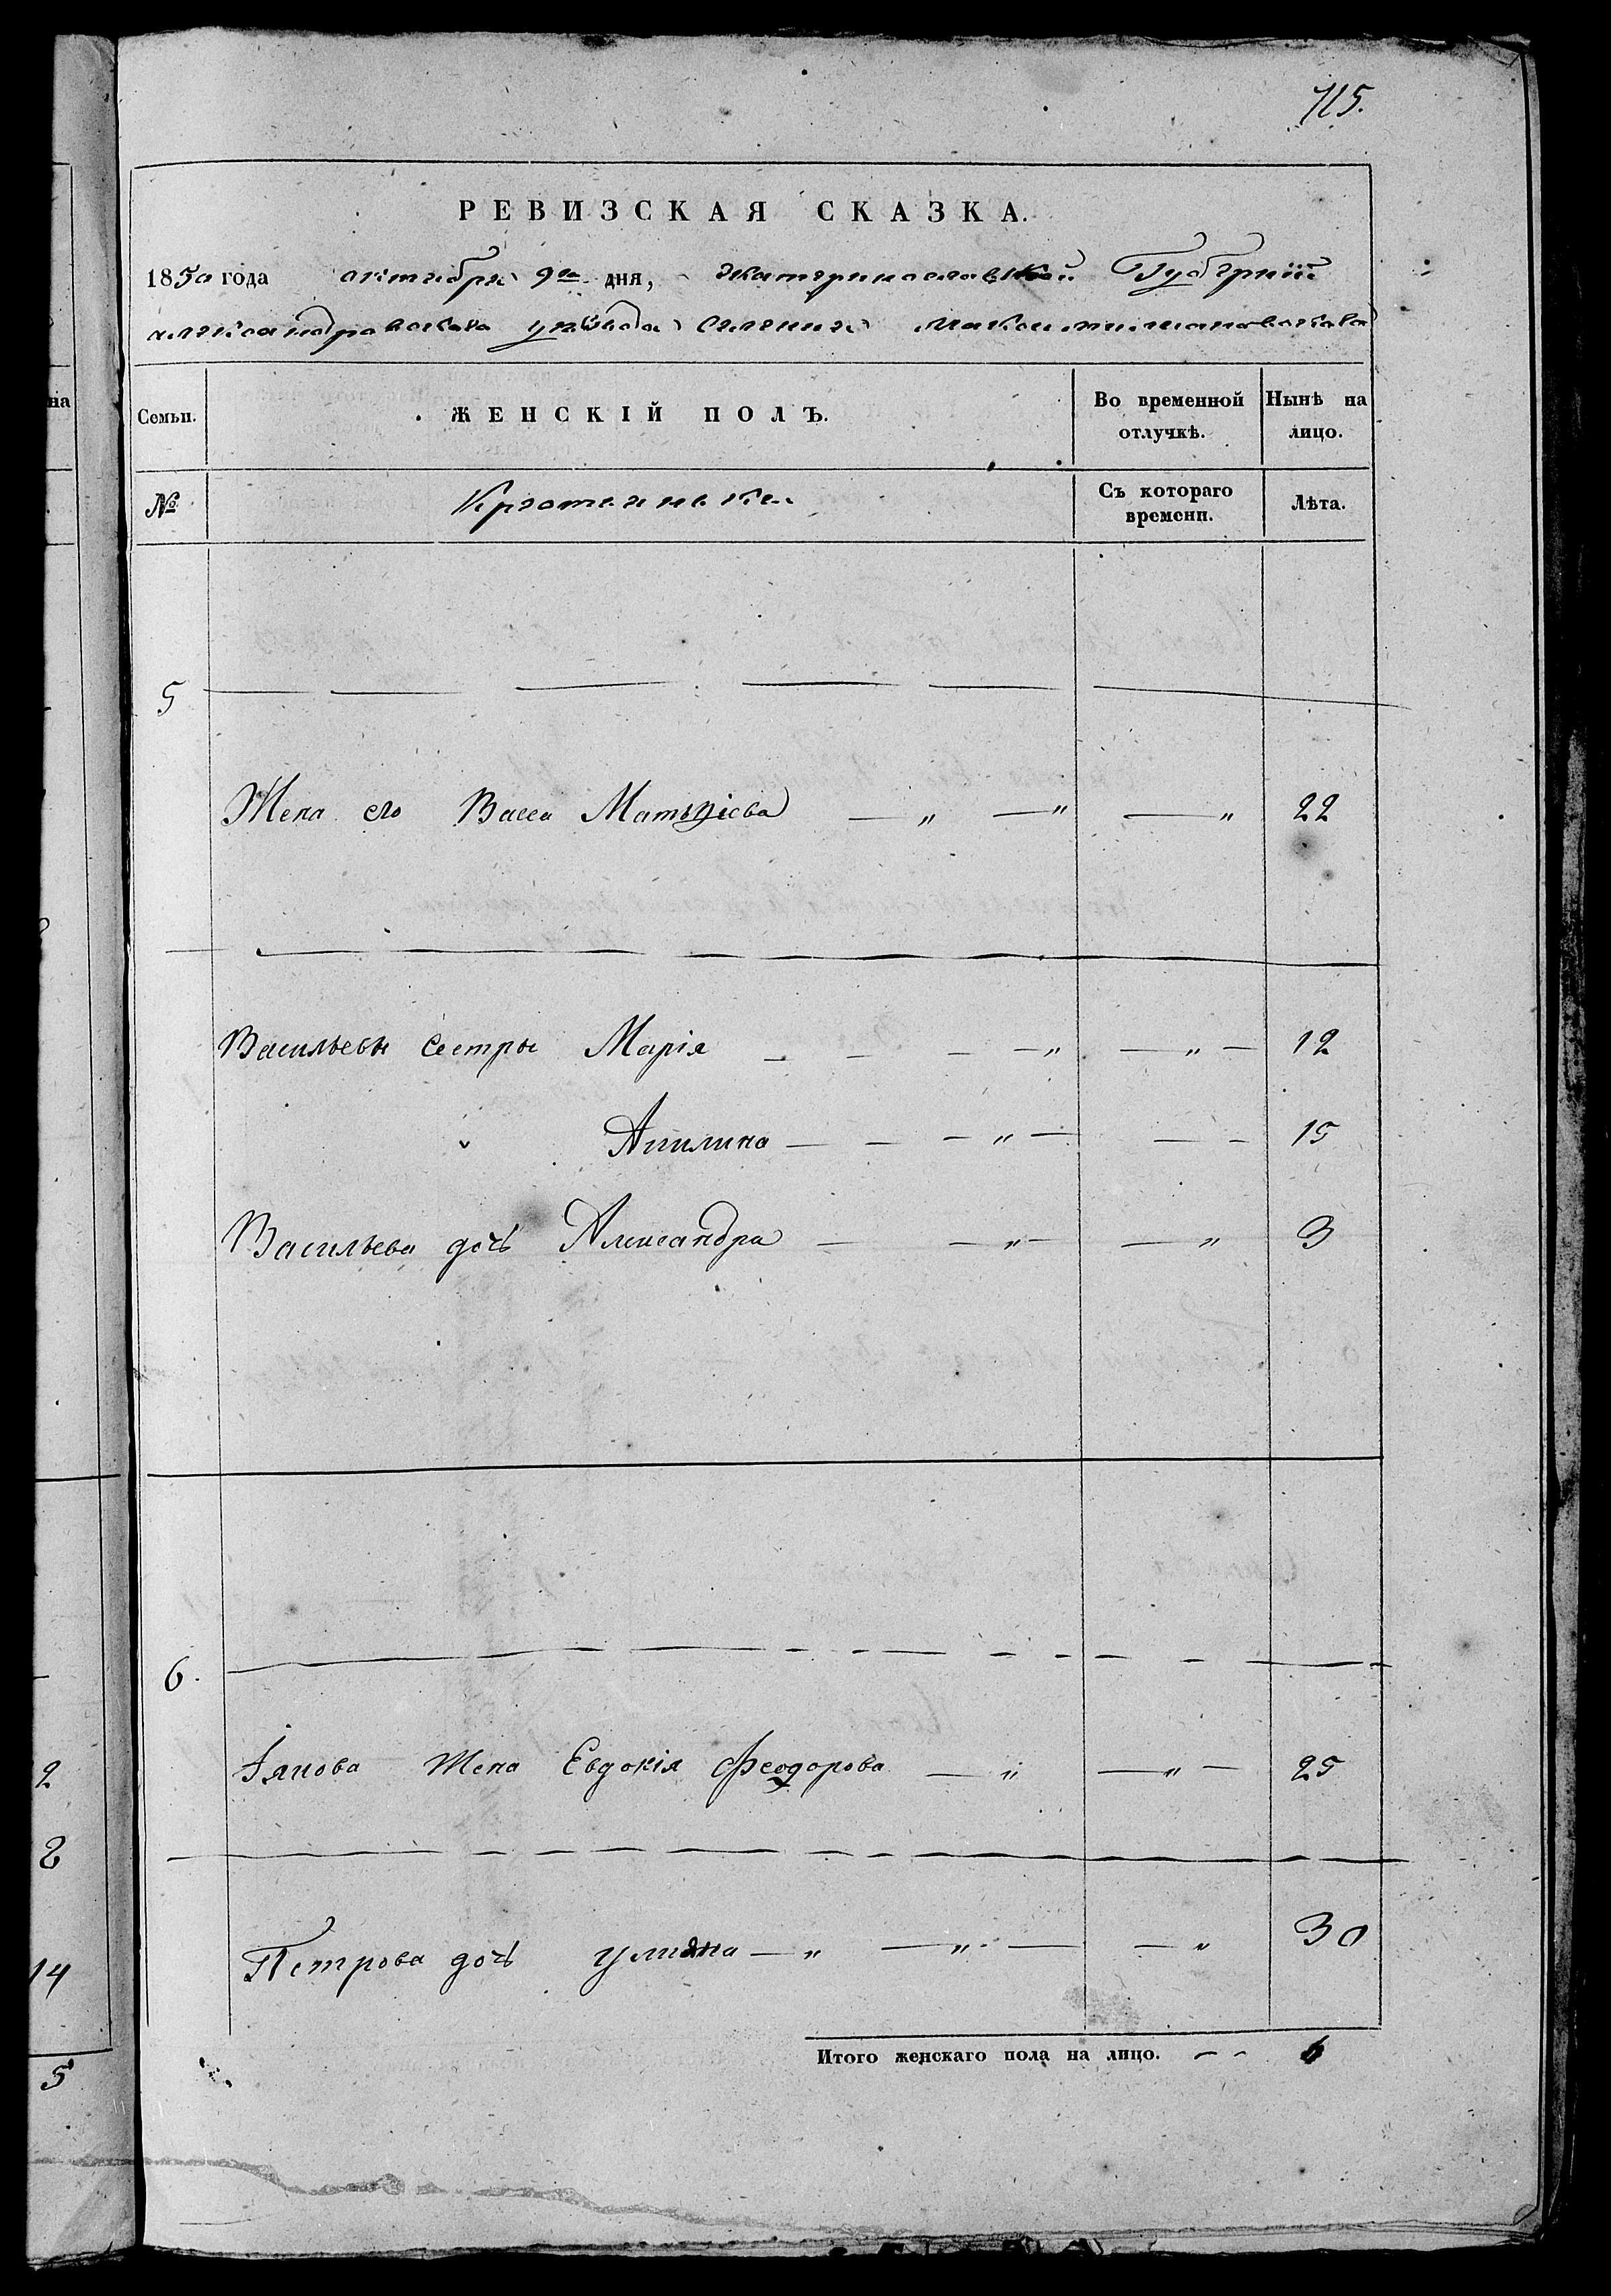 715.
РЕВИЗСКАЯ СКАЗКА.
1850 года октября 9го дня, Екатеринославской Губернии
Александровскаго уѣзда Селения
Семьи. ЖЕНСКІЙ ПОЛЪ. Во временной отлучкѣ. Нынѣ на лицо.
№ Крестьянки Съ котораго времени. Лѣта.
5
Жена его Васса Матвѣіева — „ — „ — „ 22
Васильевы сестры Марія — — — — „ — „ — 12
„ Акилина — — — „ — — — 15
Васильева дочь Александра — — „ — — „ 3
6.
Іякова жена Евдокія Феодорова — „ — „ — 25
Петрова дочь Улияна — „ — „ — — „ 30
Итого женскаго пола на лицо. — — 6
на
2
8
14
5